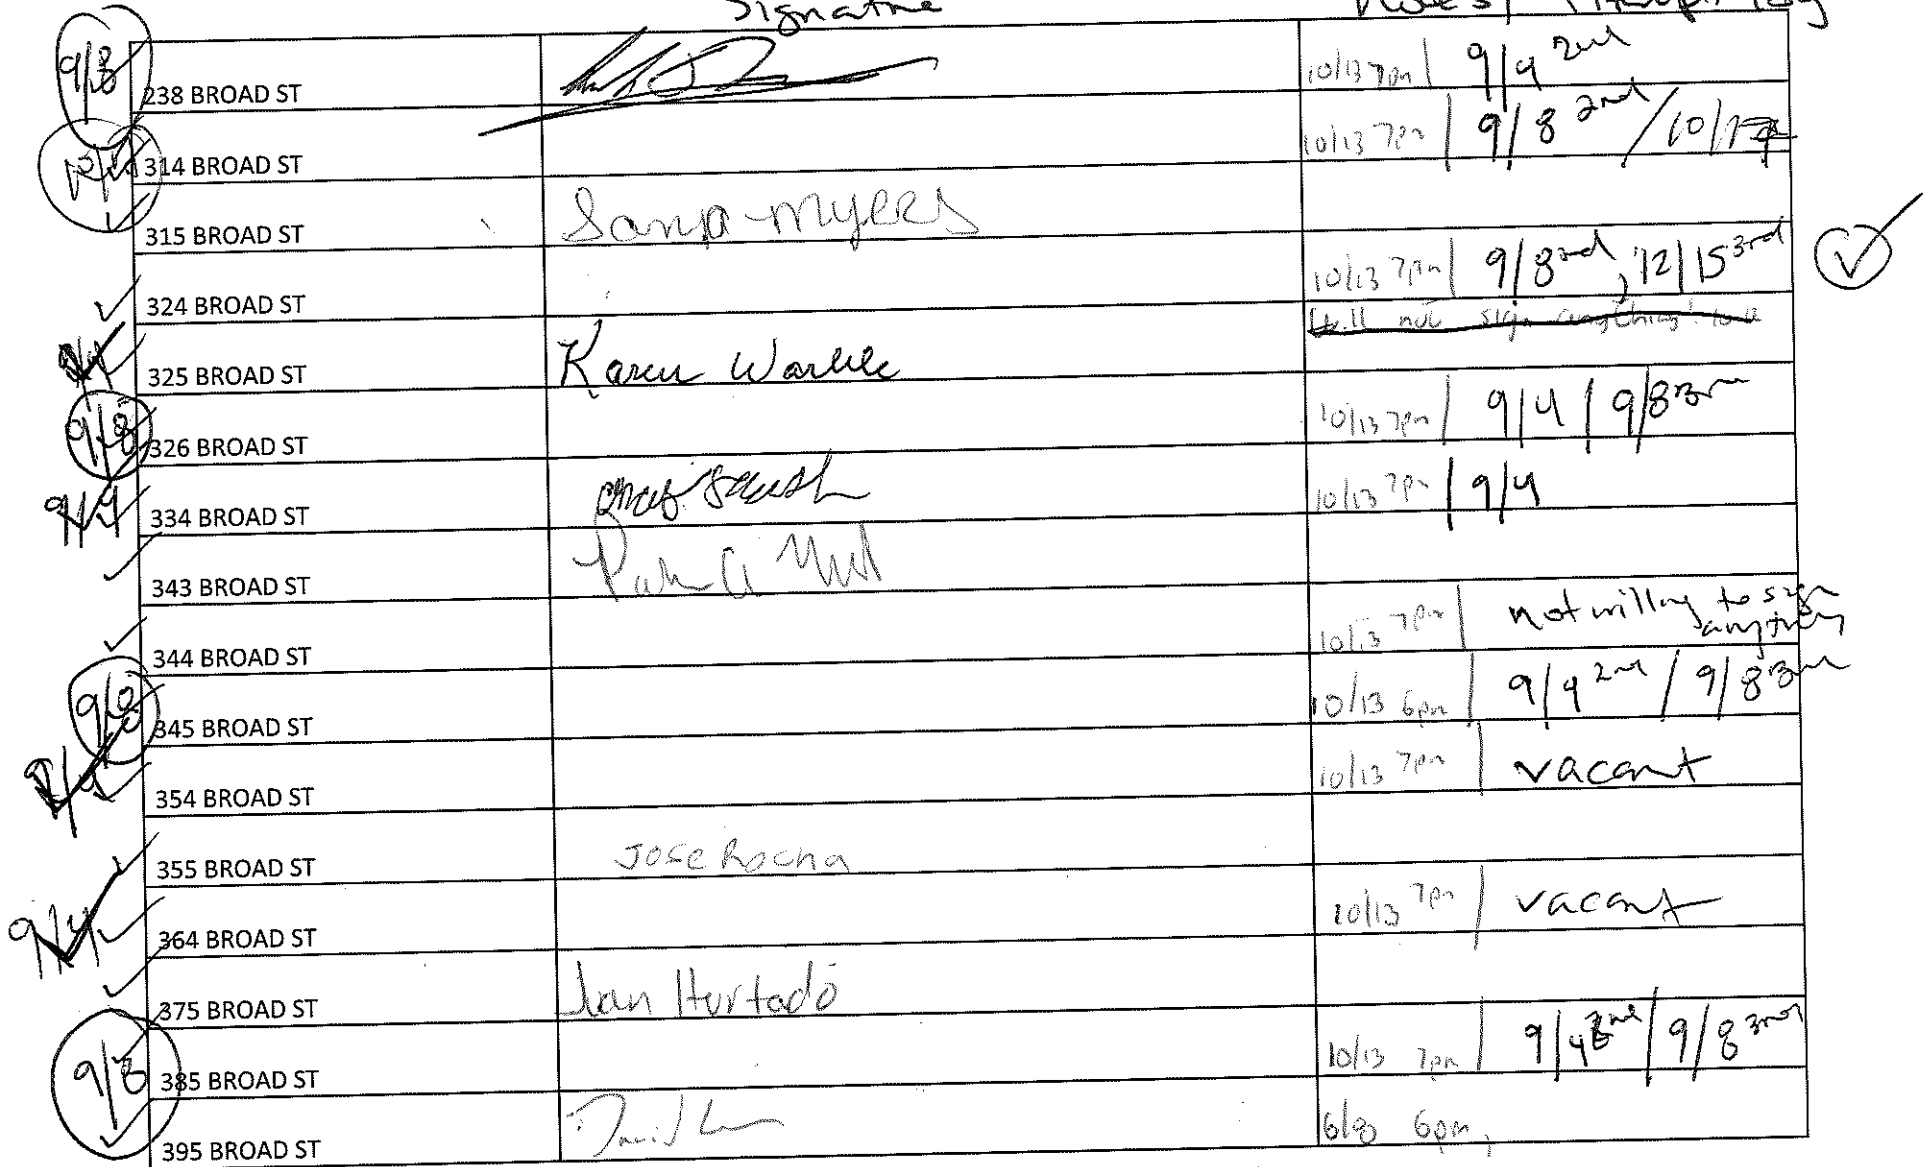 Signature
9/8 238 BROAD ST 10/13 7pm | 9/4 2nd
314 BROAD ST 10/13 7pm | 9/8 2nd /10/17
315 BROAD ST Sanya Myers
324 BROAD ST 10/13 7pm | 9/8 2nd, 12/15 3rd
will not sign anything!
9/4 325 BROAD ST Karen Warble
9/8 326 BROAD ST 10/13 7pm | 9/4 | 9/8 3rd
9/4 334 BROAD ST 10/13 7pm | 9/4
343 BROAD ST
344 BROAD ST 10/13 7pm | not willing to sign anything
9/8 345 BROAD ST 10/13 6pm | 9/4 2nd / 9/8 3rd
9/4 354 BROAD ST 10/13 7pm | vacant
355 BROAD ST Jose Rocha
9/4 364 BROAD ST 10/13 7pm | vacant
375 BROAD ST Ivan Hurtado
9/8 385 BROAD ST 10/13 7pm | 9/4 2nd / 9/8 3rd
395 BROAD ST David 6pm